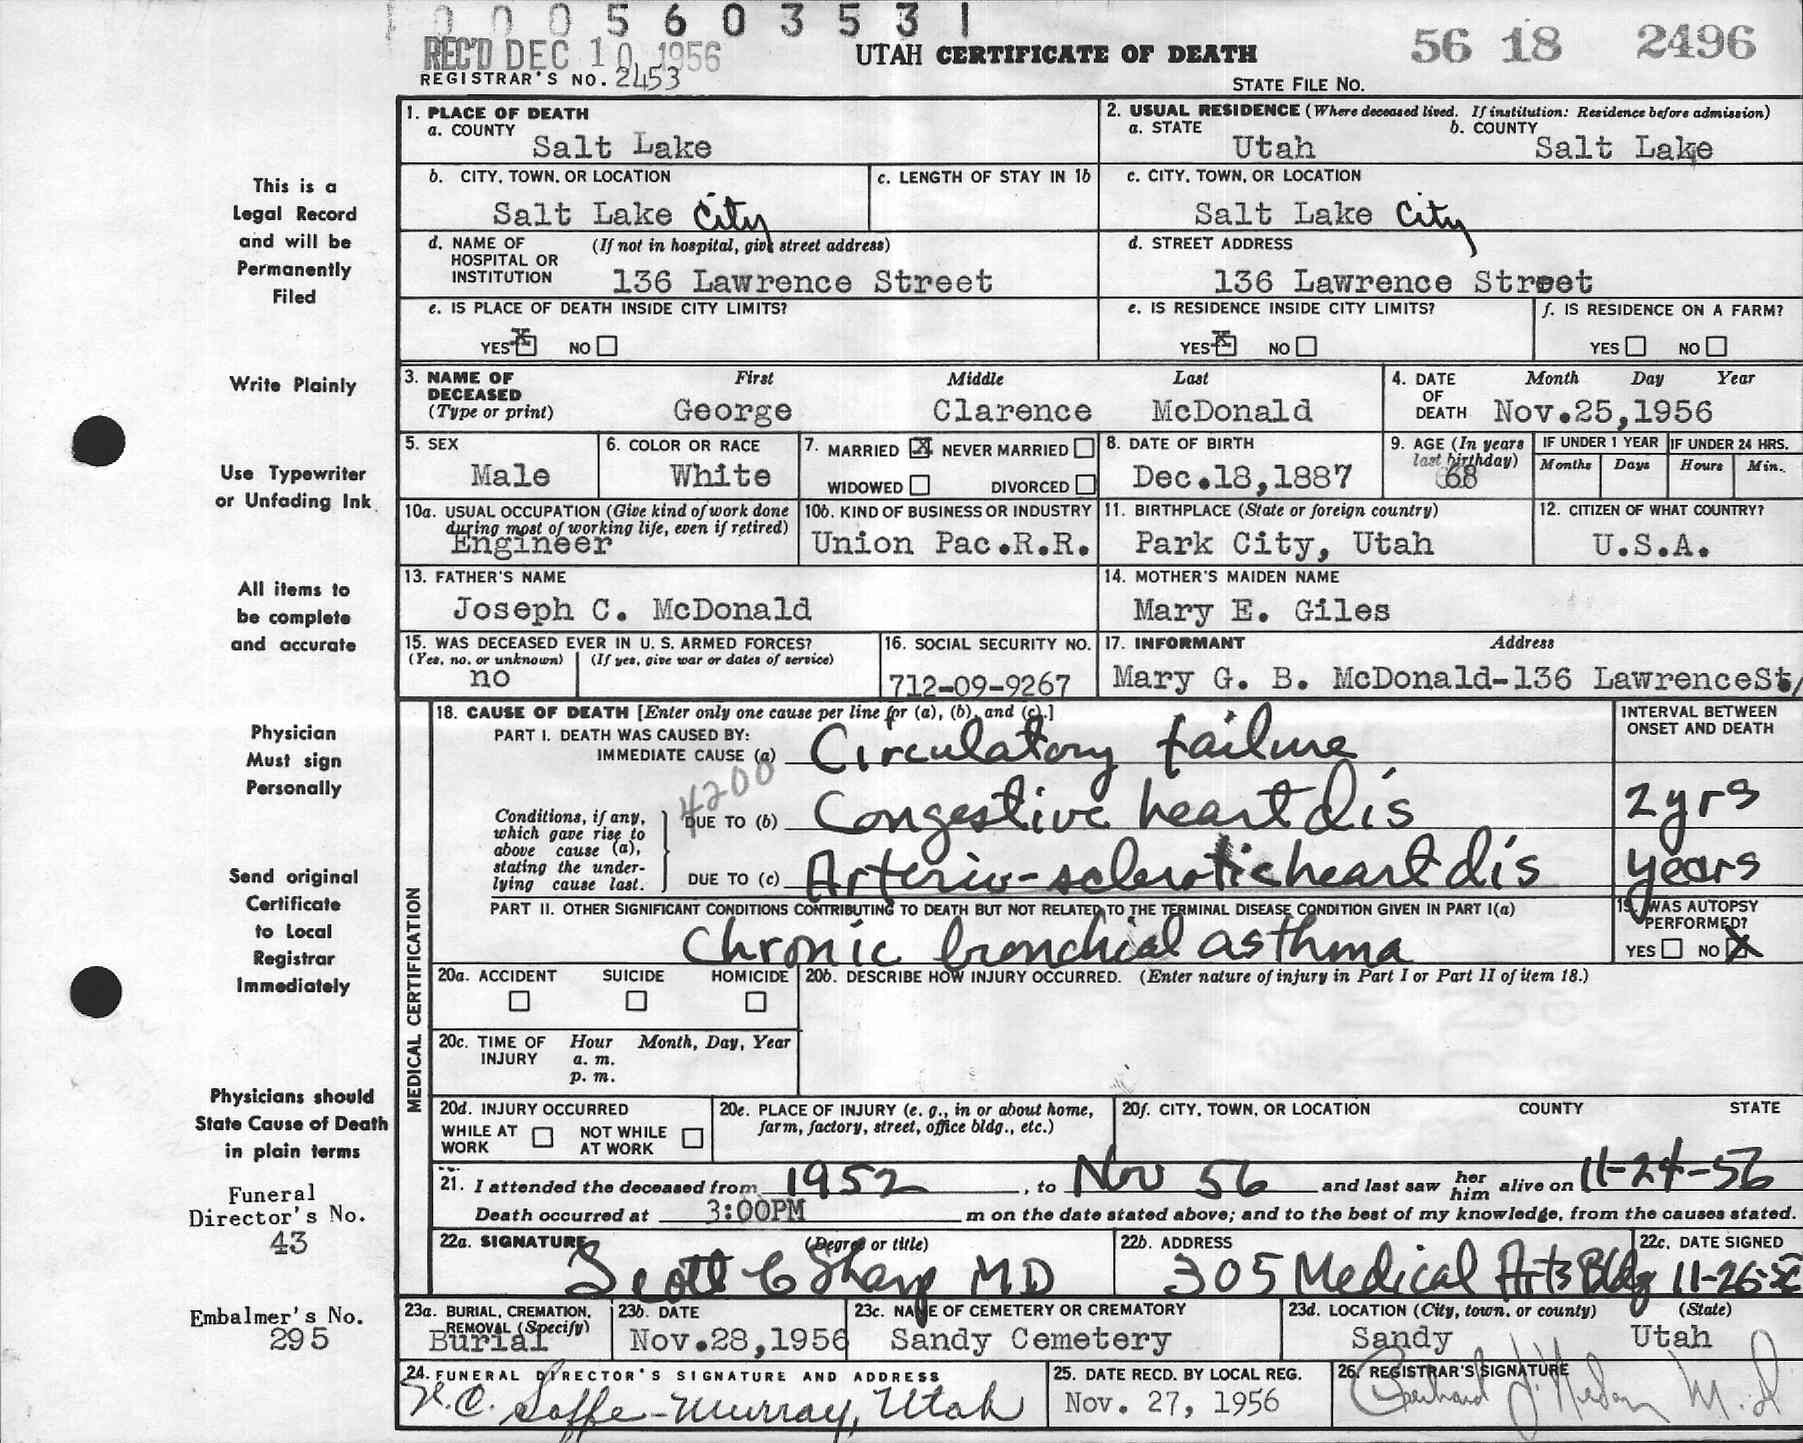 0 0 0 5 6 0 3 5 3 1
REC'D DEC 10 1956
UTAH CERTIFICATE OF DEATH
56 18 2496
REGISTRAR'S NO. 2453
STATE FILE NO.
This is a
Legal Record
and will be
Permanently
Filed
Write Plainly
Use Typewriter
or Unfading Ink
All items to
be complete
and accurate
Physician
Must sign
Personally
Send original
Certificate
to Local
Registrar
Immediately
Physicians should
State Cause of Death
in plain terms
Funeral
Director's No.
43
Embalmer's No.
295
1. PLACE OF DEATH
a. COUNTY
Salt Lake
2. USUAL RESIDENCE (Where deceased lived. If institution: Residence before admission)
a. STATE b. COUNTY
Utah Salt Lake
b. CITY, TOWN, OR LOCATION
Salt Lake City
c. LENGTH OF STAY IN 1b
c. CITY, TOWN, OR LOCATION
Salt Lake City
d. NAME OF (If not in hospital, give street address)
HOSPITAL OR
INSTITUTION 136 Lawrence Street
d. STREET ADDRESS
136 Lawrence Street
e. IS PLACE OF DEATH INSIDE CITY LIMITS?
YES X NO
e. IS RESIDENCE INSIDE CITY LIMITS?
YES X NO
f. IS RESIDENCE ON A FARM?
YES NO
3. NAME OF First Middle Last
DECEASED
(Type or print) George Clarence McDonald
4. DATE Month Day Year
OF
DEATH Nov.25,1956
5. SEX
Male
6. COLOR OR RACE
White
7. MARRIED X NEVER MARRIED
WIDOWED DIVORCED
8. DATE OF BIRTH
Dec.18,1887
9. AGE (In years
last birthday)
68
IF UNDER 1 YEAR
Months Days
IF UNDER 24 HRS.
Hours Min.
10a. USUAL OCCUPATION (Give kind of work done
during most of working life, even if retired)
Engineer
10b. KIND OF BUSINESS OR INDUSTRY
Union Pac.R.R.
11. BIRTHPLACE (State or foreign country)
Park City, Utah
12. CITIZEN OF WHAT COUNTRY?
U.S.A.
13. FATHER'S NAME
Joseph C. McDonald
14. MOTHER'S MAIDEN NAME
Mary E. Giles
15. WAS DECEASED EVER IN U. S. ARMED FORCES?
(Yes, no. or unknown) (If yes, give war or dates of service)
no
16. SOCIAL SECURITY NO.
712-09-9267
17. INFORMANT Address
Mary G. B. McDonald-136 LawrenceSt,
MEDICAL CERTIFICATION
18. CAUSE OF DEATH [Enter only one cause per line for (a), (b), and (c).]
PART I. DEATH WAS CAUSED BY:
IMMEDIATE CAUSE (a) Circulatory failure
INTERVAL BETWEEN
ONSET AND DEATH
4200
Conditions, if any,
which gave rise to
above cause (a),
stating the under-
lying cause last.
DUE TO (b) Congestive heart dis 2 yrs
DUE TO (c) Arterio-sclerotic heart dis years
PART II. OTHER SIGNIFICANT CONDITIONS CONTRIBUTING TO DEATH BUT NOT RELATED TO THE TERMINAL DISEASE CONDITION GIVEN IN PART I(a)
Chronic bronchial asthma
19. WAS AUTOPSY
PERFORMED?
YES NO X
20a. ACCIDENT SUICIDE HOMICIDE
20b. DESCRIBE HOW INJURY OCCURRED. (Enter nature of injury in Part I or Part II of item 18.)
20c. TIME OF Hour Month, Day, Year
INJURY a. m.
p. m.
20d. INJURY OCCURRED
WHILE AT NOT WHILE
WORK AT WORK
20e. PLACE OF INJURY (e. g., in or about home,
farm, factory, street, office bldg., etc.)
20f. CITY, TOWN, OR LOCATION COUNTY STATE
21. I attended the deceased from 1952, to Nov 56 and last saw her him alive on 11-24-56
Death occurred at 3:00PM m on the date stated above; and to the best of my knowledge, from the causes stated.
22a. SIGNATURE (Degree or title)
Scott C Sharp MD
22b. ADDRESS
305 Medical Arts Bldg
22c. DATE SIGNED
11-26-56
23a. BURIAL, CREMATION,
REMOVAL (Specify)
Burial
23b. DATE
Nov.28,1956
23c. NAME OF CEMETERY OR CREMATORY
Sandy Cemetery
23d. LOCATION (City, town, or county) (State)
Sandy Utah
24. FUNERAL DIRECTOR'S SIGNATURE AND ADDRESS
Murray, Utah
25. DATE RECD. BY LOCAL REG.
Nov. 27, 1956
26. REGISTRAR'S SIGNATURE
M.D